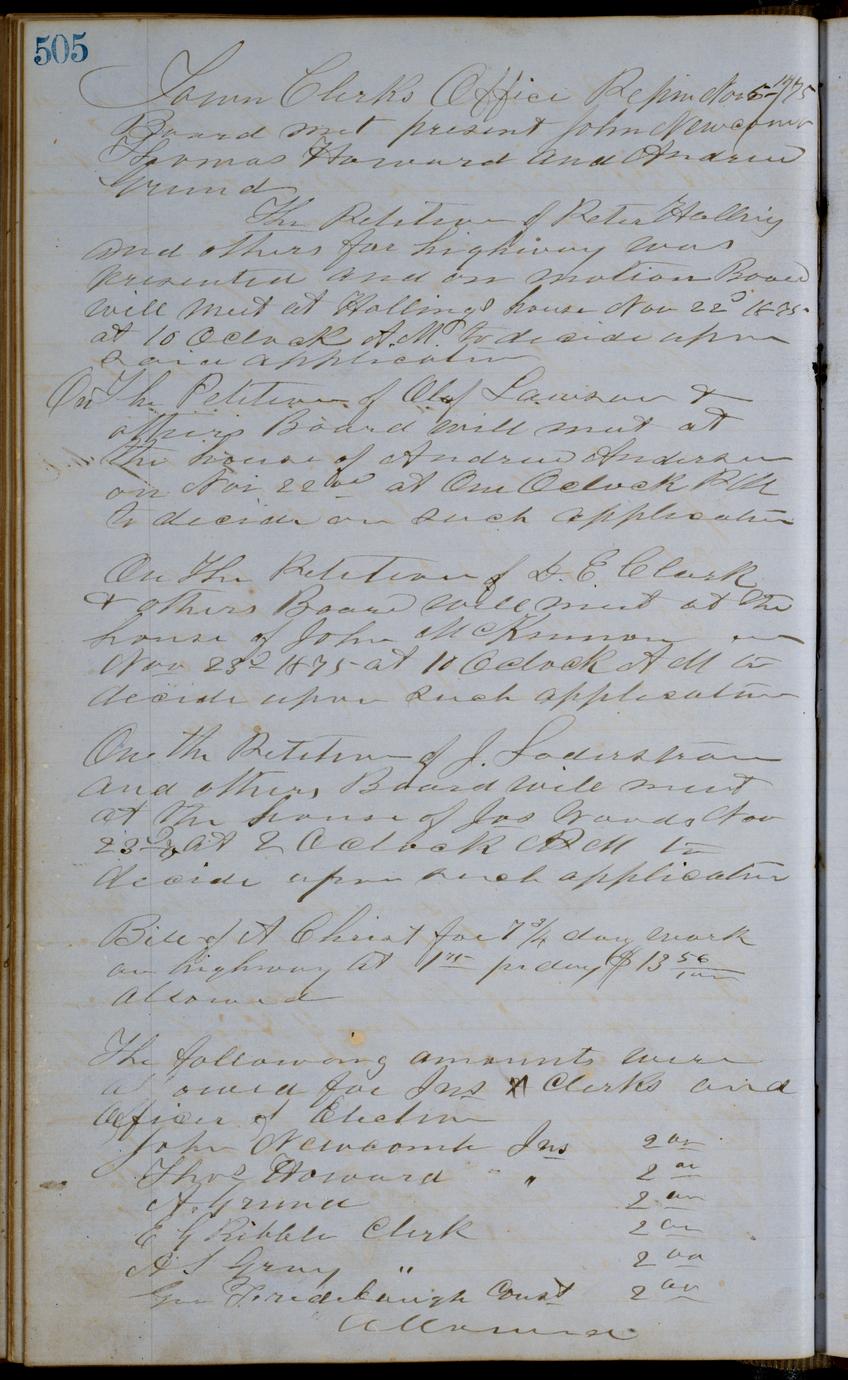 505
Town Clerks Office Pepin Nov 5th /75
Board met present John Newcomb
Thomas Howard and Andrew
Grund
The Petition of Peter Holling
and others for highway was
presented and on motion Board
will meet at Hollings house Nov 22d 1875
at 10 Oclock A.M. to decide upon
said application
On The Petition of Olof Lawson &
others Board will meet at
the house of Andrew Anderson
on Nov 22nd at One Oclock P M
to decide on such application
On The Petition of D. E Clark
& others Board will meet at the
house of John McKinnon on
Nov 23d 1875 at 10 Oclock A M to
decide upon such application
One the Petition of J. Soderstrom
and others Board will meet
at the house of Jos Woods Nov
23d at 2 Oclock P M to
decide upon such application
Bill of A Christ for 7 3/4 day work
on highway at 1 75 pr day $ 13 56/100
allowed
The following amounts were
allowed for Ins Clerks and
Officer of Election
John Newcomb Ins 2 00
Thos Howard " " 2 00
A. Grund 2 00
E G Ribble Clerk 2 00
A S Gray " 2 00
Geo Const 2 00
Allowed